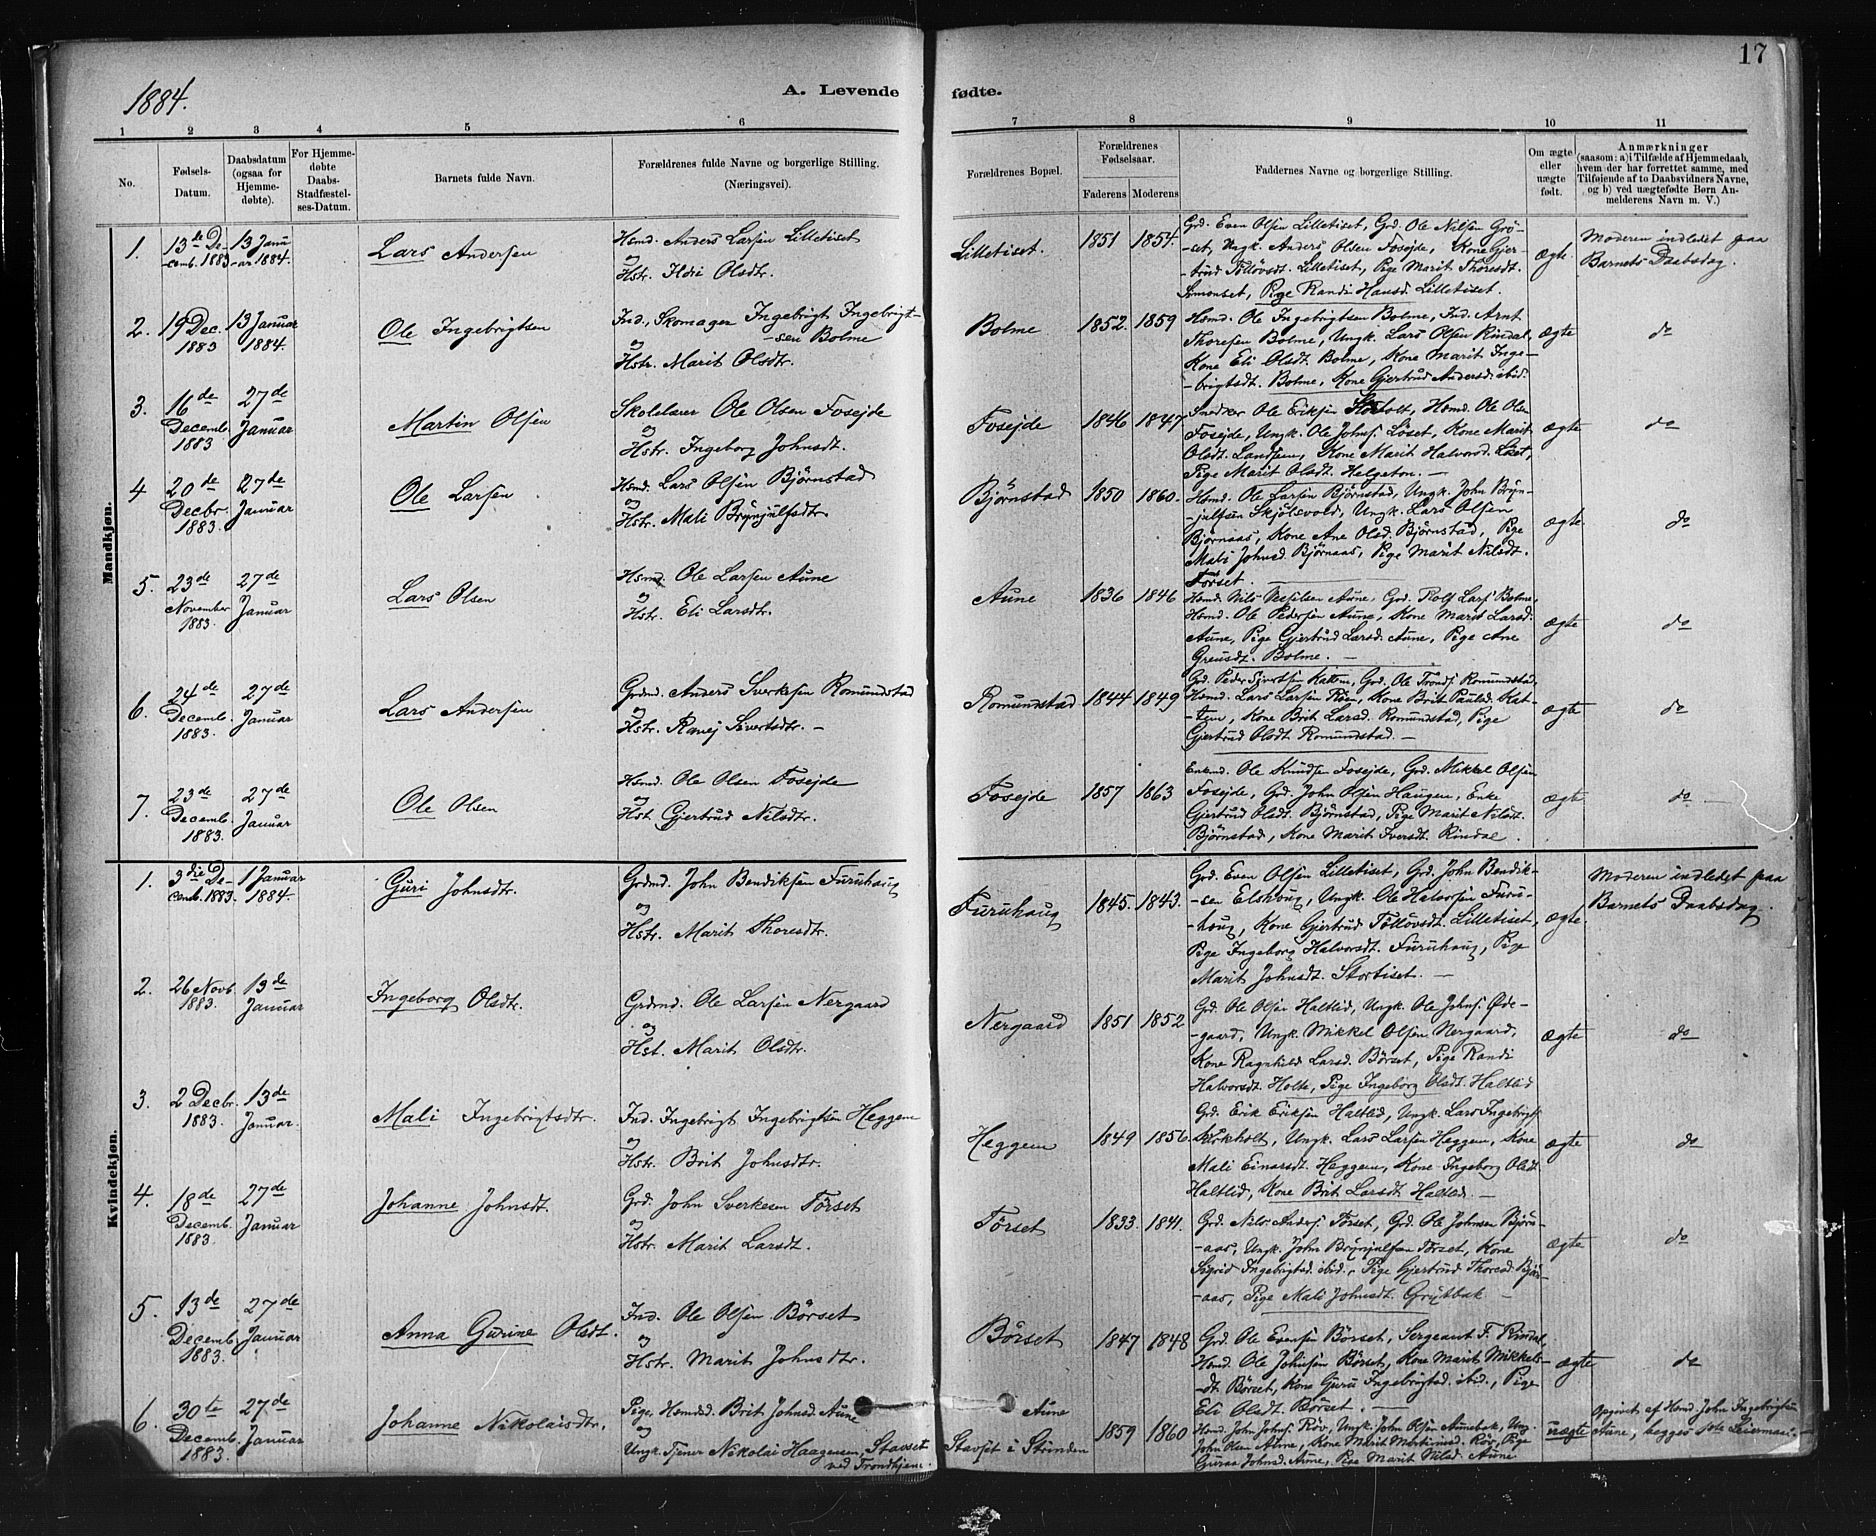 17
1884.
A. Levende fødte.
1 2 3 4 5 6 7 8 9 10 11
No.
Fødsels-Datum.
Daabsdatum (ogsaa for Hjemmedøbte).
For Hjemmedøbte Daabs-Stadfæstelses-Datum.
Barnets fulde Navn.
Forældrenes fulde Navne og borgerlige Stilling. (Næringsvei).
Forældrenes Bopæl.
Forældrenes Fødselsaar.
Faderens Moderens
Faddernes Navne og borgerlige Stilling.
Om ægte eller uægte født.
Anmærkninger
(saasom: a) i Tilfælde af Hjemmedaab,
hvem der har forrettet samme, med
Tilføiende af to Daabsvidners Navne,
og b) ved uægtefødte Børn Anmelderens Navn m. V.)
Mandkjøn.
1. 13de Decemb. 1883 13 Januar 1884. Lars Andersen
Hsmd. Anders Larsen Lilletiset
og
Hstr. Ildri Olsdtr.
Lilletiset. 1851 1854.
Grd. Even Olsen Lilletiset, Grd. Ole Nilsen Grö-
-set, Ungk. Anders Olsen Fosejde, Kone Gjer-
-trud Tollövsdt. Lilletiset, Pige Marit Thoresdt.
Simonset, Pige Randi Hansd. Lilletiset.
ægte. Moderen indledet paa
Barnets Daabsdag.
2. 19 Dec. 1883 13 Januar 1884. Ole Ingebrigtsen
Ind., Skomager Ingebrigt Ingebrigt-
-sen Bolme
og
Hstr. Marit Olsdtr.
Bolme 1852. 1859
Hsmd. Ole Ingebrigtsen Bolme, Ind. Arnt
Thoresen Bolme, Ungk. Lars Olsen Rindal,
Kone Eli Olsdt. Bolme, Kone Marit Inge-
-brigtsdt. Bolme, Kone Gjertrud Andersd. ibid.
ægte do
3. 16de Decemb. 1883 27de Januar Martin Olsen
Skolelærer Ole Olsen Fosejde
og
Hstr. Ingeborg Johnsdt.
Fosejde 1846 1847
Snedker Ole Eriksen Holt, Hsmd. Ole Olsen
Fosejde, Ungk. Ole Johns. Löset, Kone Marit
Olsdt. Landsem, Kone Marit Halvorsd. Löset,
Pige Marit Olsdt. Helgeton. –
ægte do
4 20de Decbr. 1883. 27de Januar Ole Larsen
Hsmd. Lars Olsen Bjørnstad
og
Hstr. Mali Brynjulfsdtr.
Bjørnstad 1850 1860.
Hsmd. Ole Larsen Bjørnstad, Ungk. John Bryn-
-julfsen Skjölsvold, Ungk. Lars Olsen
Bjørnaas, Kone Ane Olsd. Bjørnstad, Pige
Mali Johnsd. Bjørnaas, Pige Marit Nilsdt.
Törset.
ægte do
5. 23de November 1883. 27de Januar Lars Olsen
Hsmd. Ole Larsen Aune
og
Hstr. Eli Larsdtr.
Aune 1836 1846
Hsmd. Nils Nilsen Aune, Grd. Rolf Lars. Bolme,
Hsmd. Ole Pedersen Aune, Kone Marit Larsd.
Aune, Pige Gjertrud Larsd. Aune, Pige Ane
Greusdt. Bolme. –
ægte do
6. 24de Decemb. 1883. 27de Januar Lars Andersen
Grdmd. Anders Sverkesen Romundstad
og
Hstr. Ranej Sivertsdtr. –
Romundstad 1844 1849
Grd. Peder Sivertsen Kattem, Grd. Ole Tronds. Romundstad,
Hsmd. Lars Larsen Röen, Kone Brit Paulsd. Kat-
-tem, Kone Brit Larsd. Romundstad, Pige
Gjertrud Olsdt. Romundstad. –
ægte do
7. 23de Decemb. 1883. 27de Januar Ole Olsen
Hsmd. Ole Olsen Fosejde
og
Hst. Gjertrud Nilsdtr.
Fosejde 1857 1863
Enkmd. Ole Knudsen Fosejde, Grd. Mikkel Olsen
Fosejde, Grd. John Olsen Haugen, Enke
Gjertrud Olsdt. Bjørnstad, Pige Marit Nilsdt.
Bjørnstad, Kone Marit Iversdt. Rindal.
ægte do –
Kvindekjøn.
1. 3die Decemb. 1883. 1 Januar 1884. Guri Johnsdtr.
Grdmd. John Bendiksen Furuhaug
og
Hstr. Marit Thoresdtr.
Furuhaug 1845. 1843.
Grd. Even Olsen Lilletiset, Grd. John Bendik-
-sen Elshoug, Ungk. Ole Halvorsen Furu-
-houg, Kone Gjertrud Tollövsdt. Lilletiset,
Pige Ingeborg Halvorsdt. Furuhaug, Pige
Marit Johnsdt. Stortiset. –
ægte. Moderen indledet paa
Barnets Daabsdag.
2. 26 Novb. 1883. 13de Januar Ingeborg Olsdtr.
Grdmd. Ole Larsen Nergaard
og
Hst. Marit Olsdtr.
Nergaard 1851 1852
Grd. Ole Olsen Haltlid, Ungk. Ole Johns. Øde-
-gaard, Ungk. Mikkel Olsen Nergaard,
Kone Ragnhild Larsd. Børset, Pige Randi
Halvorsdt. Holte, Pige Ingeborg Olsdt. Haltlid
ægte do
3. 2 Decbr. 1883. 13de Januar. Mali Ingebrigtsdtr.
Ind. Ingebrigt Ingebrigtsen Heggem
og
Hstr. Brit Johnsdtr.
Heggem 1849 1856.
Grd. Erik Eriksen Haltlid, Ungk. Lars Ingebrigts.
Kirkholt, Ungk. Lars Larsen Heggem, Kone
Mali Einarsdt. Heggem, Kone Ingeborg Olsdt
Haltlid, Kone Brit Larsdt. Haltlid. –
ægte do
4. 18de Decemb. 1883. 27de Januar Johanne Johnsdt.
Grd. John Sverkesen Törset
og
Hstr. Marit Larsdt.
Törset 1833. 1841.
Grd. Nils Anders. Törset, Grd. Ole Johnsen Bjørn-
-aas, Ungk. John Brynjulfsen Törset, Kone
Sigrid Ingebrigtsd. ibid., Pige Gjertrud Thoresd. Bjørn-
-aas, Pige Mali Johnsdt. Grytbak –
ægte do
5. 13de Decemb. 1883. 27de Januar Anna Gurine Olsdt.
Ind. Ole Olsen Børset
og
Hstr. Marit Johnsdtr.
Børset 1847 1848
Grd. Ole Evensen Børset, Sergeant F. Rindal,
Hsmd. Ole Johnsen Børset, Kone Marit Mikkels-
-dt. Børset, Kone Guru Ingebrigtsd. ibid., Pige
Eli Olsdt. Børset. –
ægte do
6. 30te Decemb. 1883. 27de Januar Johanne Nikolaisdtr.
Pige, Hsmdsd. Brit Johnsd. Aune
og
Ungk. Tjener Nikolai Haagensen Stavset
ved Trondhjem.
Aune
Stavset i Strinden 1859 1860
Hsmd. John Johns. Röv, Ungk. John Olsen Aunebak, Ung.
John Olsen Aune, Kone Marit Mortensd. Röv, Pige
Guraa Johnsd. Aune, Pige Marit Nilsd. Aune
uægte Opgivet af Hsmd. John Ingebrigtsen
Aune, begges 1ste Leiermaal. –